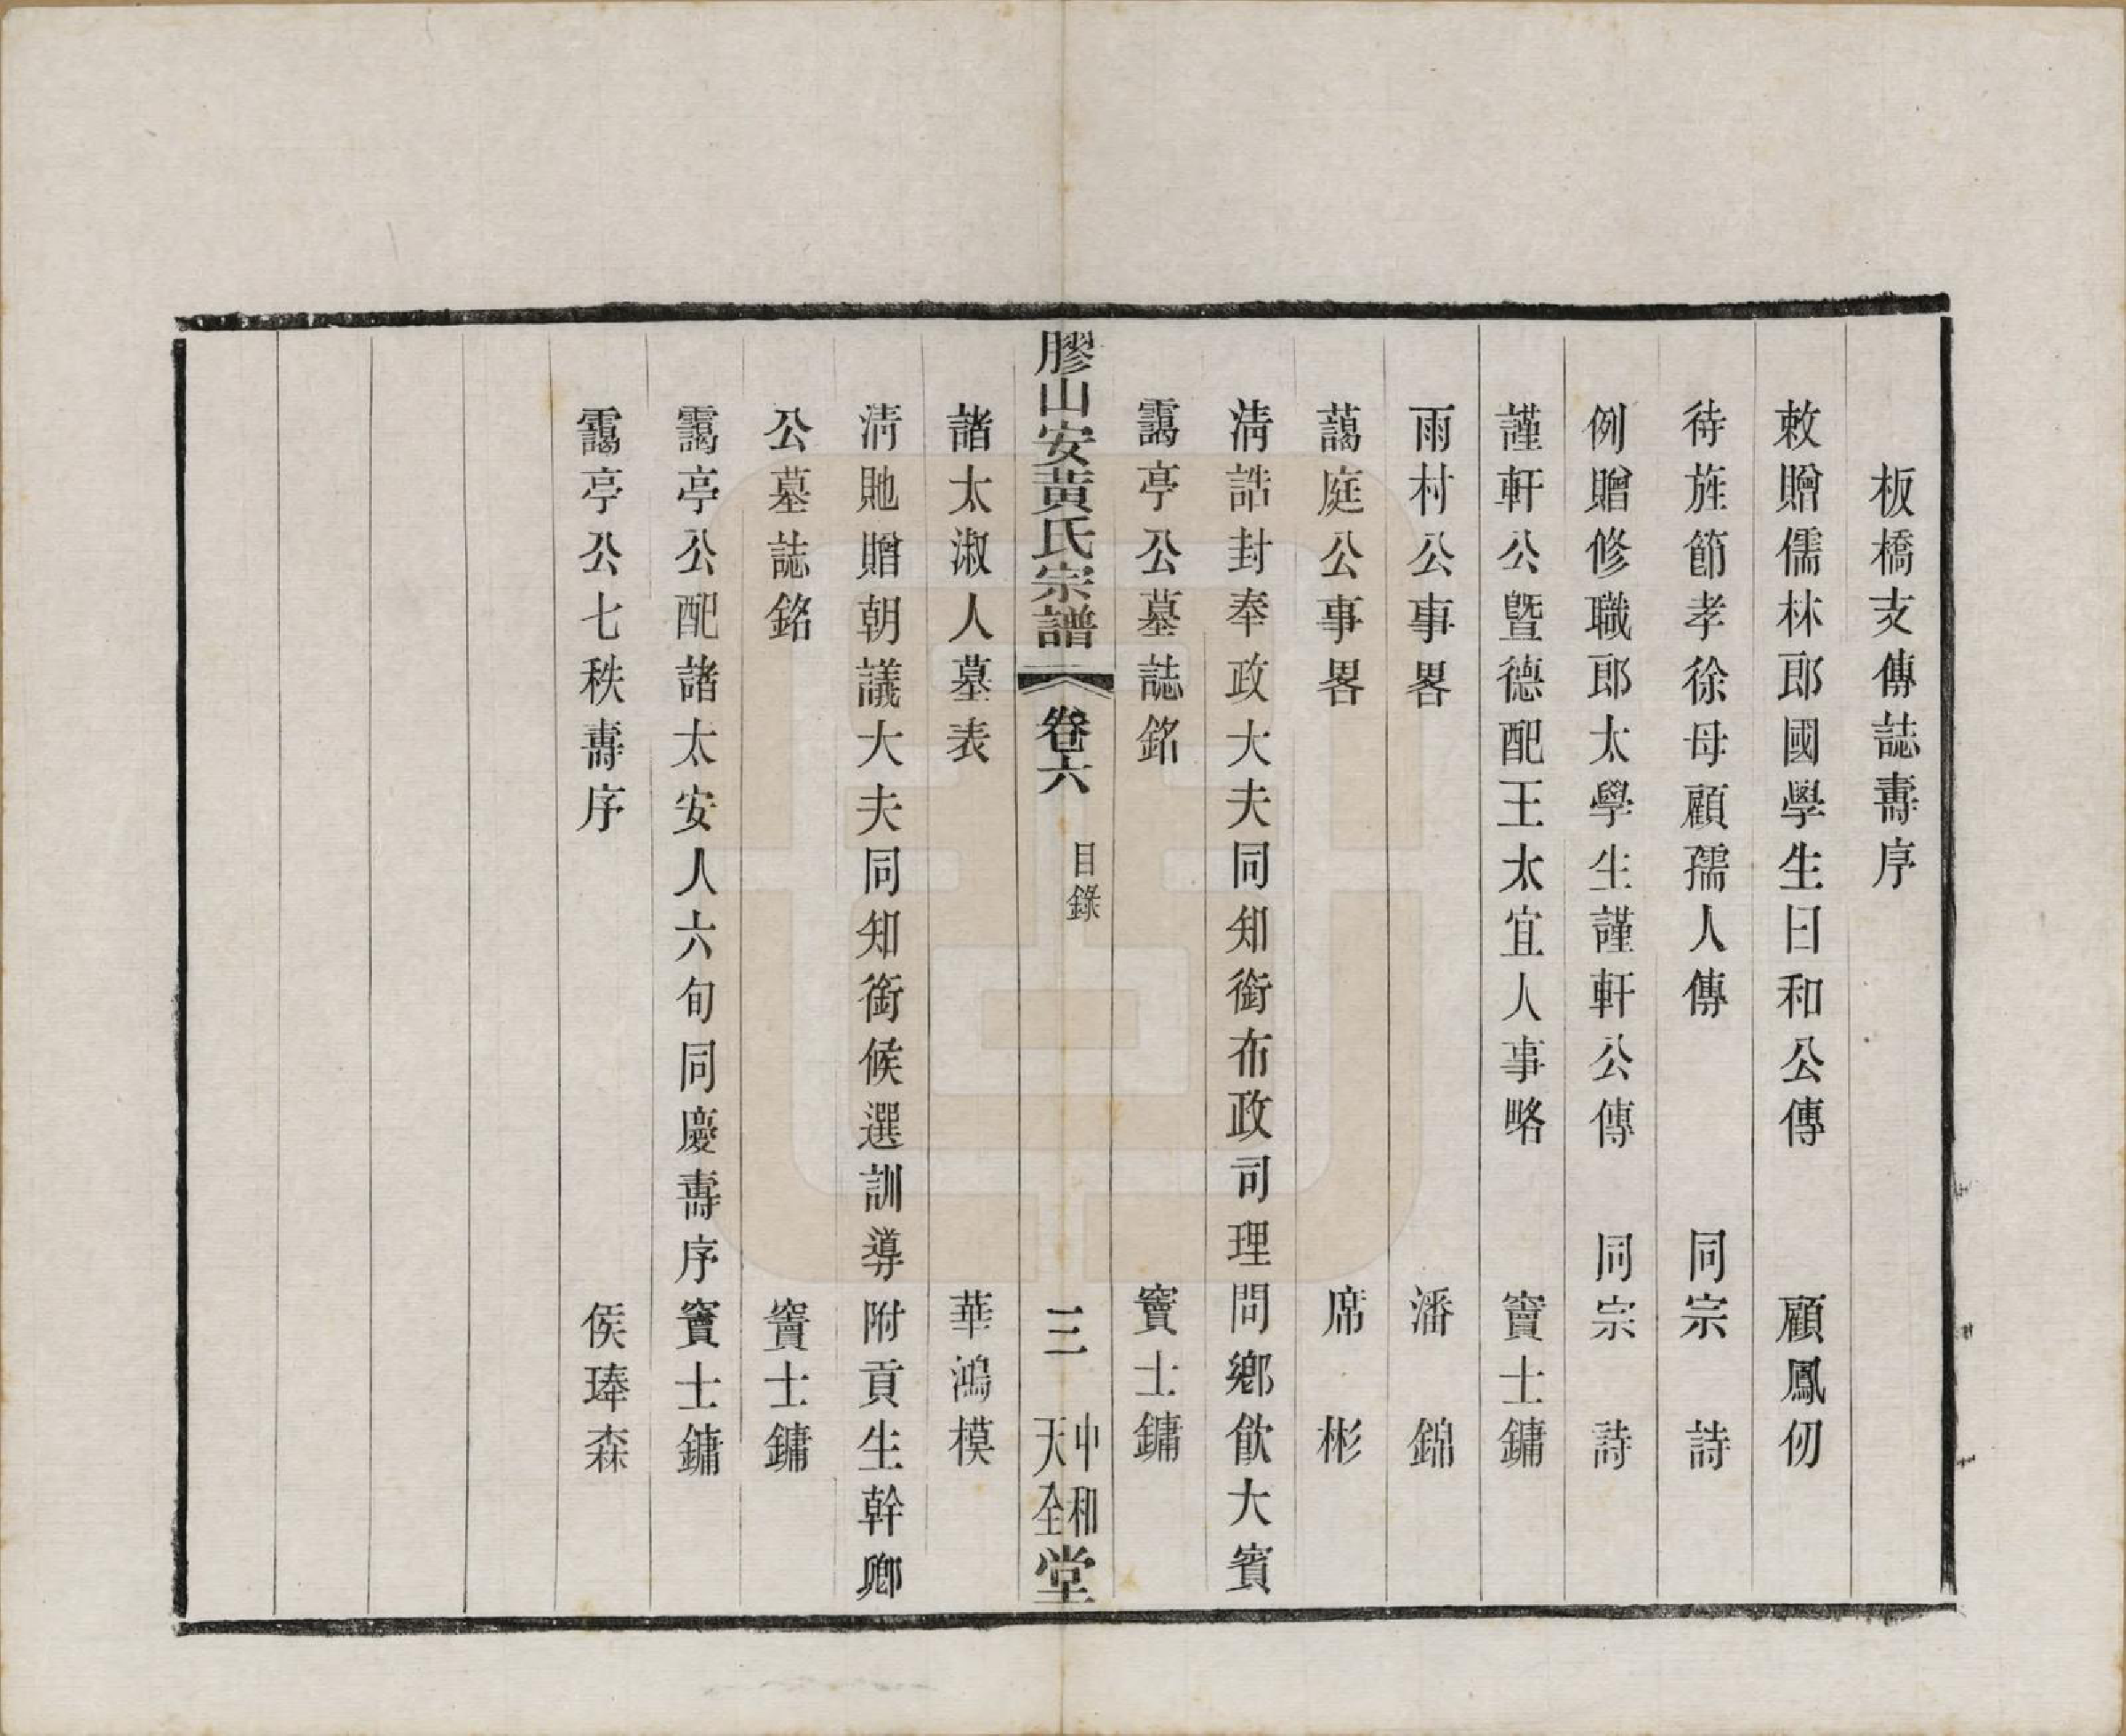 板橋支傳誌壽序
敕贈儒林郎國學生曰和公傳　顧鳳仞
待旌節孝徐母顧孺人傳　同宗　詩
例贈修職郎太學生謹軒公傳　同宗　詩
謹軒公暨德配王太宜人事略　竇士鏞
雨村公事畧　潘　錦
藹庭公事畧　席　彬
清誥封奉政大夫同知銜布政司理問鄉飲大賓
靄亭公墓誌銘　竇士鏞
膠山安黃氏宗譜　卷六　目錄　三　中和天全堂
諸太淑人墓表　華鴻模
清貤贈朝議大夫同知銜候選訓導附貢生幹卿
公墓誌銘　竇士鏞
靄亭公配諸太安人六旬同慶壽序　竇士鏞
靄亭公七秩壽序　侯琫森